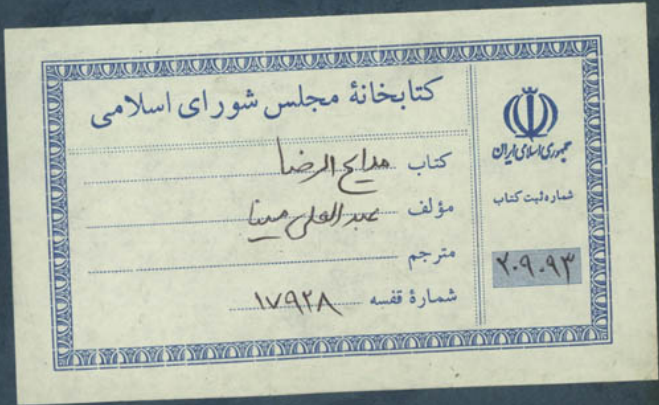 کتابخانهٔ مجلس شورای اسلامی
کتاب مدایح الرضا
مؤلف عبدالعلی مینا
مترجم
شمارهٔ قفسه ۱۷۹۲۸
جمهوری اسلامی ایران
شماره ثبت کتاب
۲۰۹۰۹۳